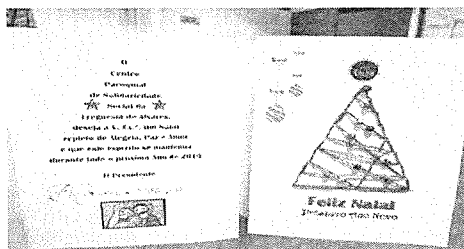 O
Centro
Paroquial
de Solidariedade
Social da
Freguesia de Alvares,
deseja a V. Ex.ª, um Natal
repleto de Alegria, Paz e Amor
e que este Espírito se mantenha
durante todo o próximo Ano de 2014
O Presidente
Feliz Natal
Próspero Ano Novo